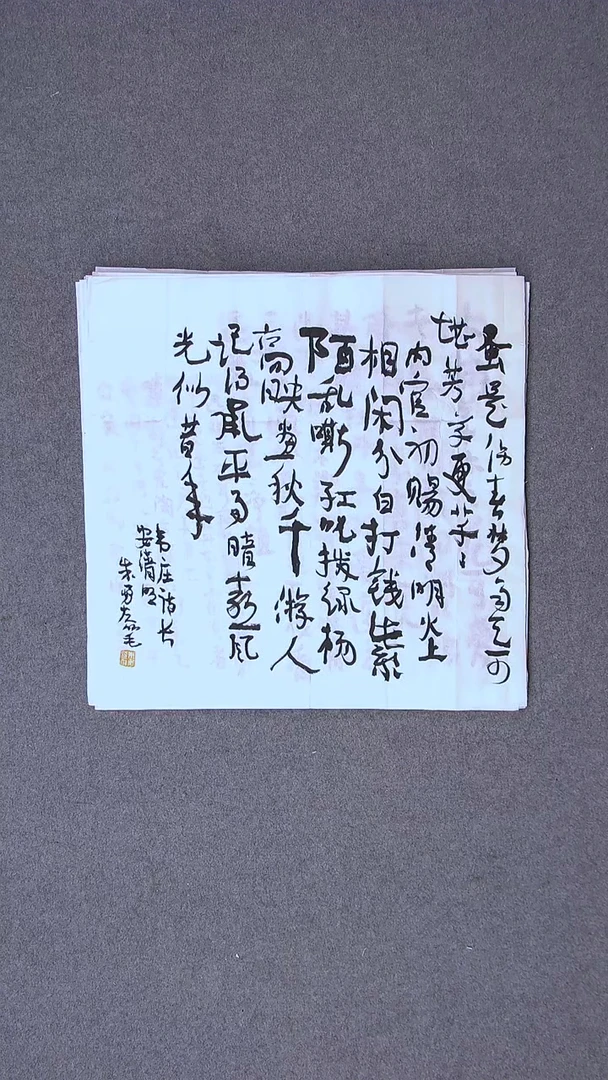 蚤是伤春梦雨天可
堪芳草更芊々
内官初赐清明火上
相闲分白打钱紫
陌乱嘶红叱拨绿杨
高映画秋千游人
记得承平事暗喜风
光似昔年
韦庄诗长
安清明
朱勇